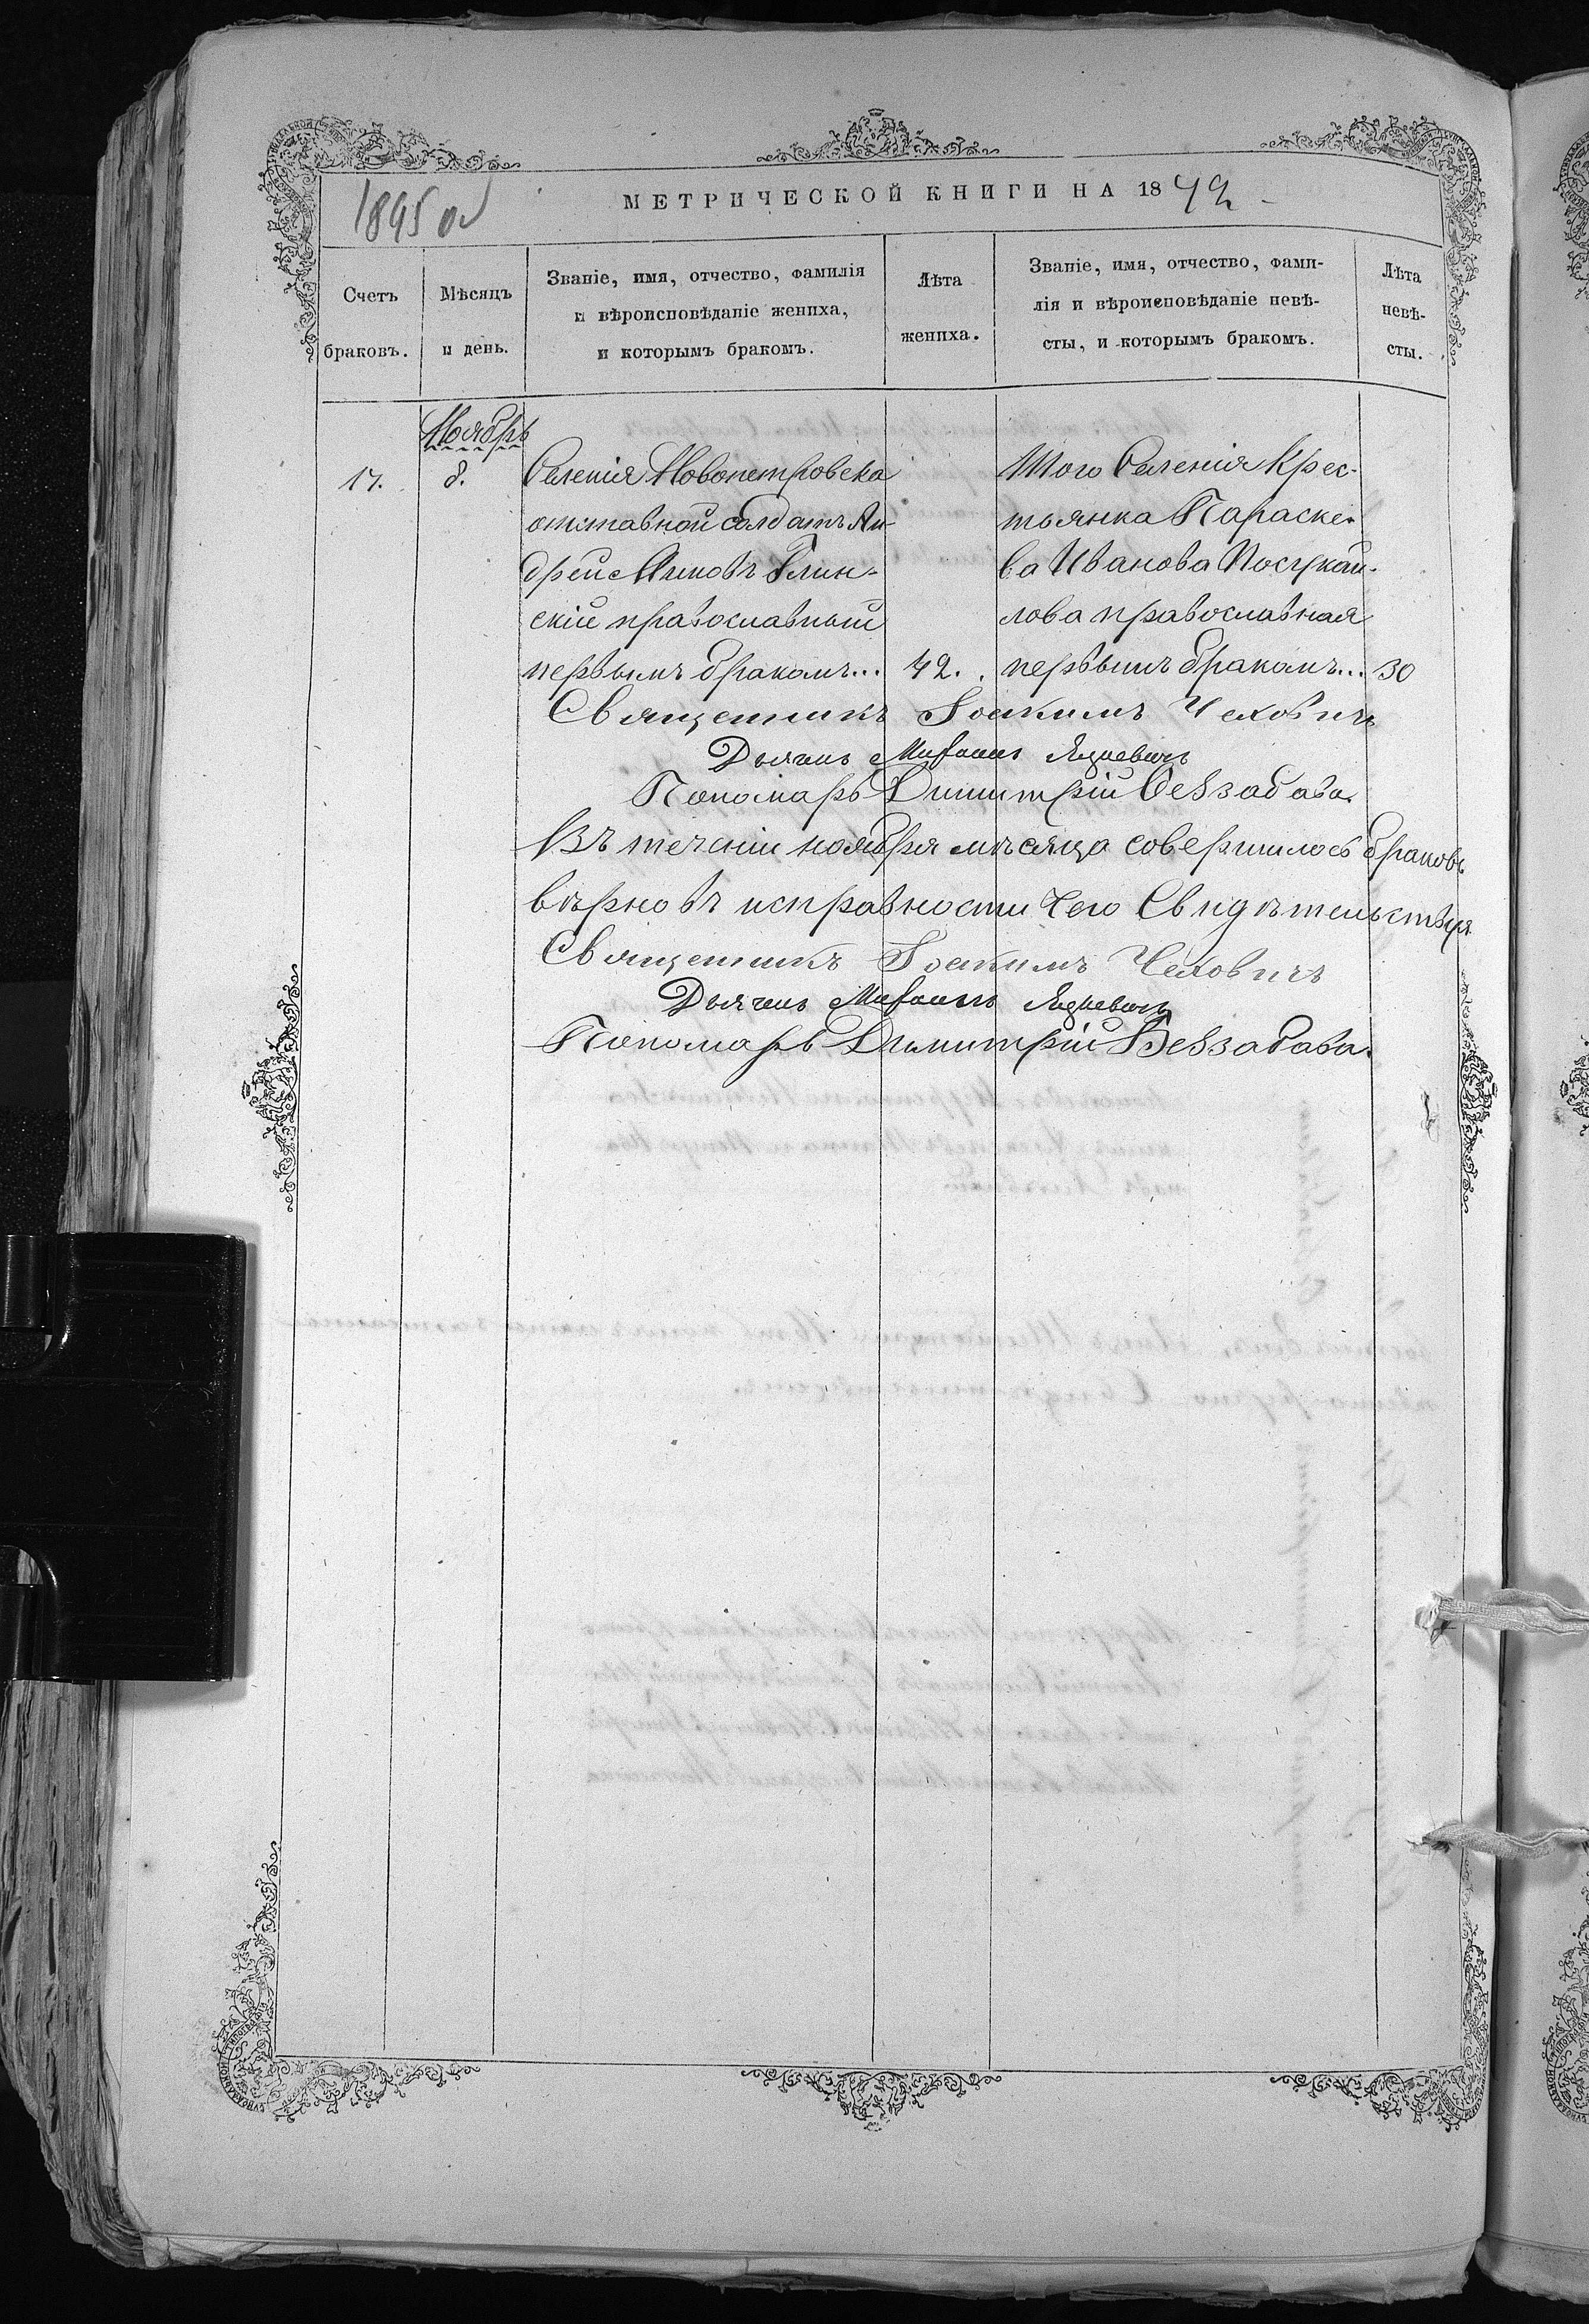 1895 об
МЕТРИЧЕСКОЙ КНИГИ НА 1872
Счетъ браковъ.
Мѣсяцъ и день.
Званіе, имя, отчество, фамилія
и вѣроисповѣданіе жениха,
и которымъ бракомъ.
Лѣта
жениха.
Званіе, имя, отчество, фами-
лія и вѣроисповѣданіе невѣ-
сты, и которымъ бракомъ.
Лѣта
невѣ-
сты.
Ноябрь
17. 8.
Селенія Новопетровска
отставной солдатъ Ан-
дрей Глин-
скій православный
первымъ бракомъ... 42.
Того Селенія Крес-
тьянка Параске-
ва Иванова
лова православная
первымъ бракомъ... 30
Священникъ Іоакимъ Чехович
Дьячекъ
Пономарь Димитрій Беззабава.
Въ теченіи ноября мѣсяца совершилось браковъ
вѣрно въ исправности чего Свидѣтельствуя
Священникъ Іоакимъ Чеховичъ
Дьячекъ
Пономарь Димитрій Беззабава.